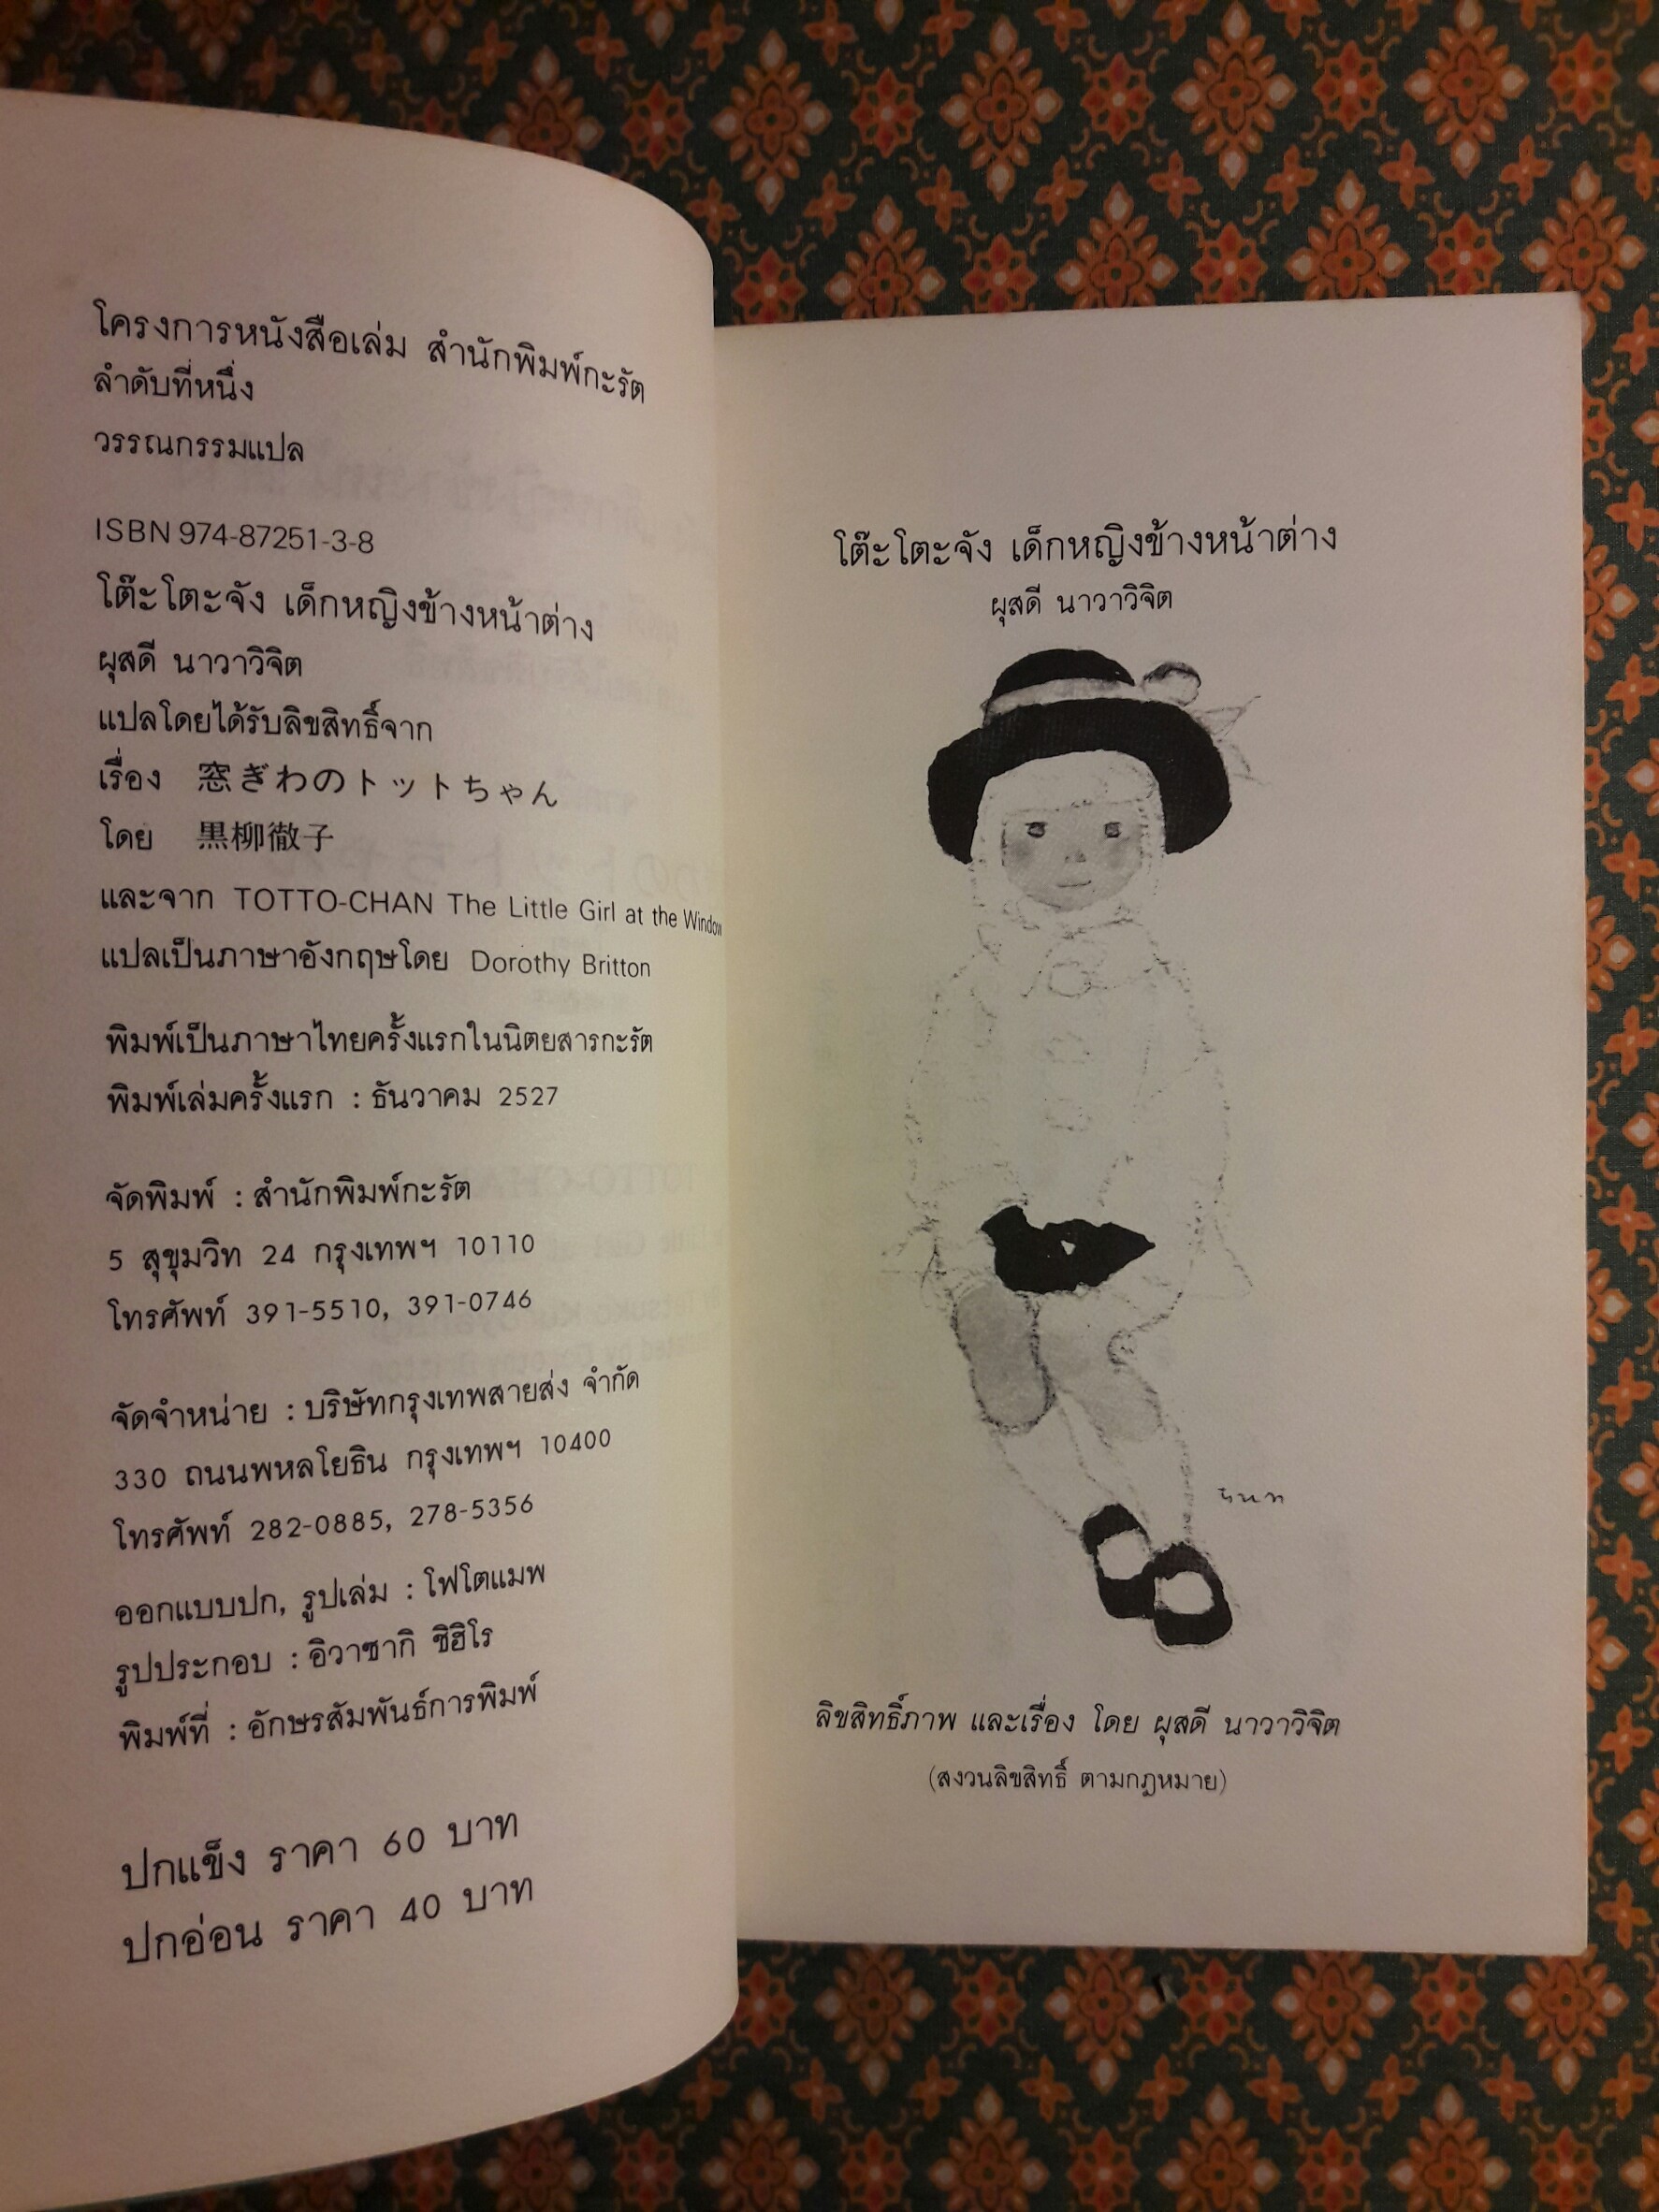 โครงการหนังสือเล่ม สำนักพิมพ์กะรัต
ลำดับที่หนึ่ง
วรรณกรรมแปล
ISBN 974-87251-3-8
โต๊ะโตะจัง เด็กหญิงข้างหน้าต่าง
ผุสดี นาวาวิจิต
แปลโดยได้รับลิขสิทธิ์จาก
เรื่อง 窓ぎわのトットちゃん
โดย 黒柳徹子
และจาก TOTTO-CHAN The Little Girl at the Window
แปลเป็นภาษาอังกฤษโดย Dorothy Britton
พิมพ์เป็นภาษาไทยครั้งแรกในนิตยสารกะรัต
พิมพ์เล่มครั้งแรก : ธันวาคม 2527
จัดพิมพ์ : สำนักพิมพ์กะรัต
5 สุขุมวิท 24 กรุงเทพฯ 10110
โทรศัพท์ 391-5510, 391-0746
จัดจำหน่าย : บริษัทกรุงเทพสายส่ง จำกัด
330 ถนนพหลโยธิน กรุงเทพฯ 10400
โทรศัพท์ 282-0885, 278-5356
ออกแบบปก, รูปเล่ม : โฟโตแมพ
รูปประกอบ : อิวาซากิ ชิฮิโร
พิมพ์ที่ : อักษรสัมพันธ์การพิมพ์
ปกแข็ง ราคา 60 บาท
ปกอ่อน ราคา 40 บาท
โต๊ะโตะจัง เด็กหญิงข้างหน้าต่าง
ผุสดี นาวาวิจิต
ลิขสิทธิ์ภาพ และเรื่อง โดย ผุสดี นาวาวิจิต
(สงวนลิขสิทธิ์ ตามกฎหมาย)